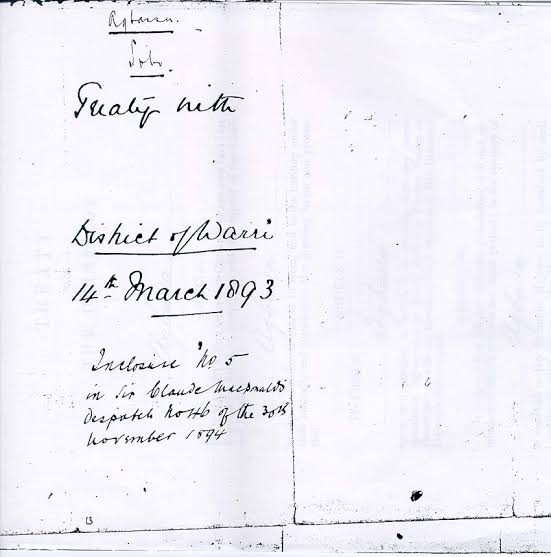 Agbassa.
Sobo.
Treaty with
District of Warri
14th March 1893
Inclosure No. 5
in Sir Claude MacDonald's
Despatch No 46 of the 30th
November 1894
13